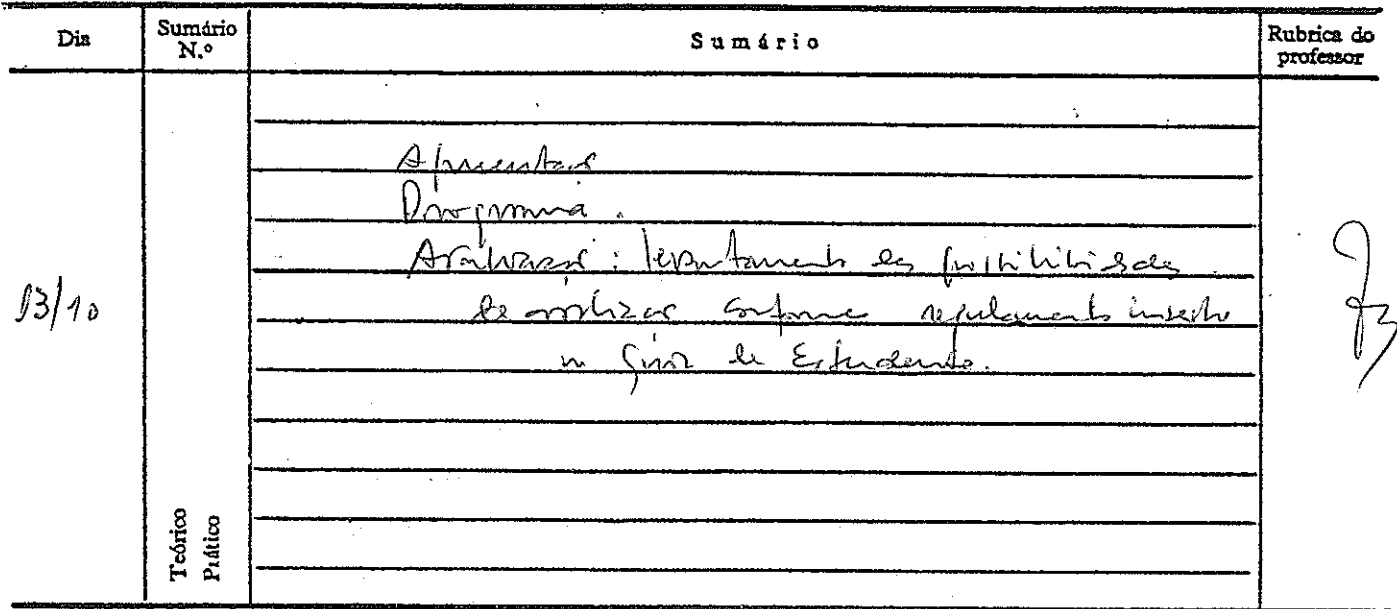 Dia
Sumário N.º
Sumário
Rubrica do professor
13/10
Apresentação
Programa.
Avaliação: levantamento das possibilidades
de avaliação conforme regulamento inserto
no Guia do Estudante.
Teórico
Prático